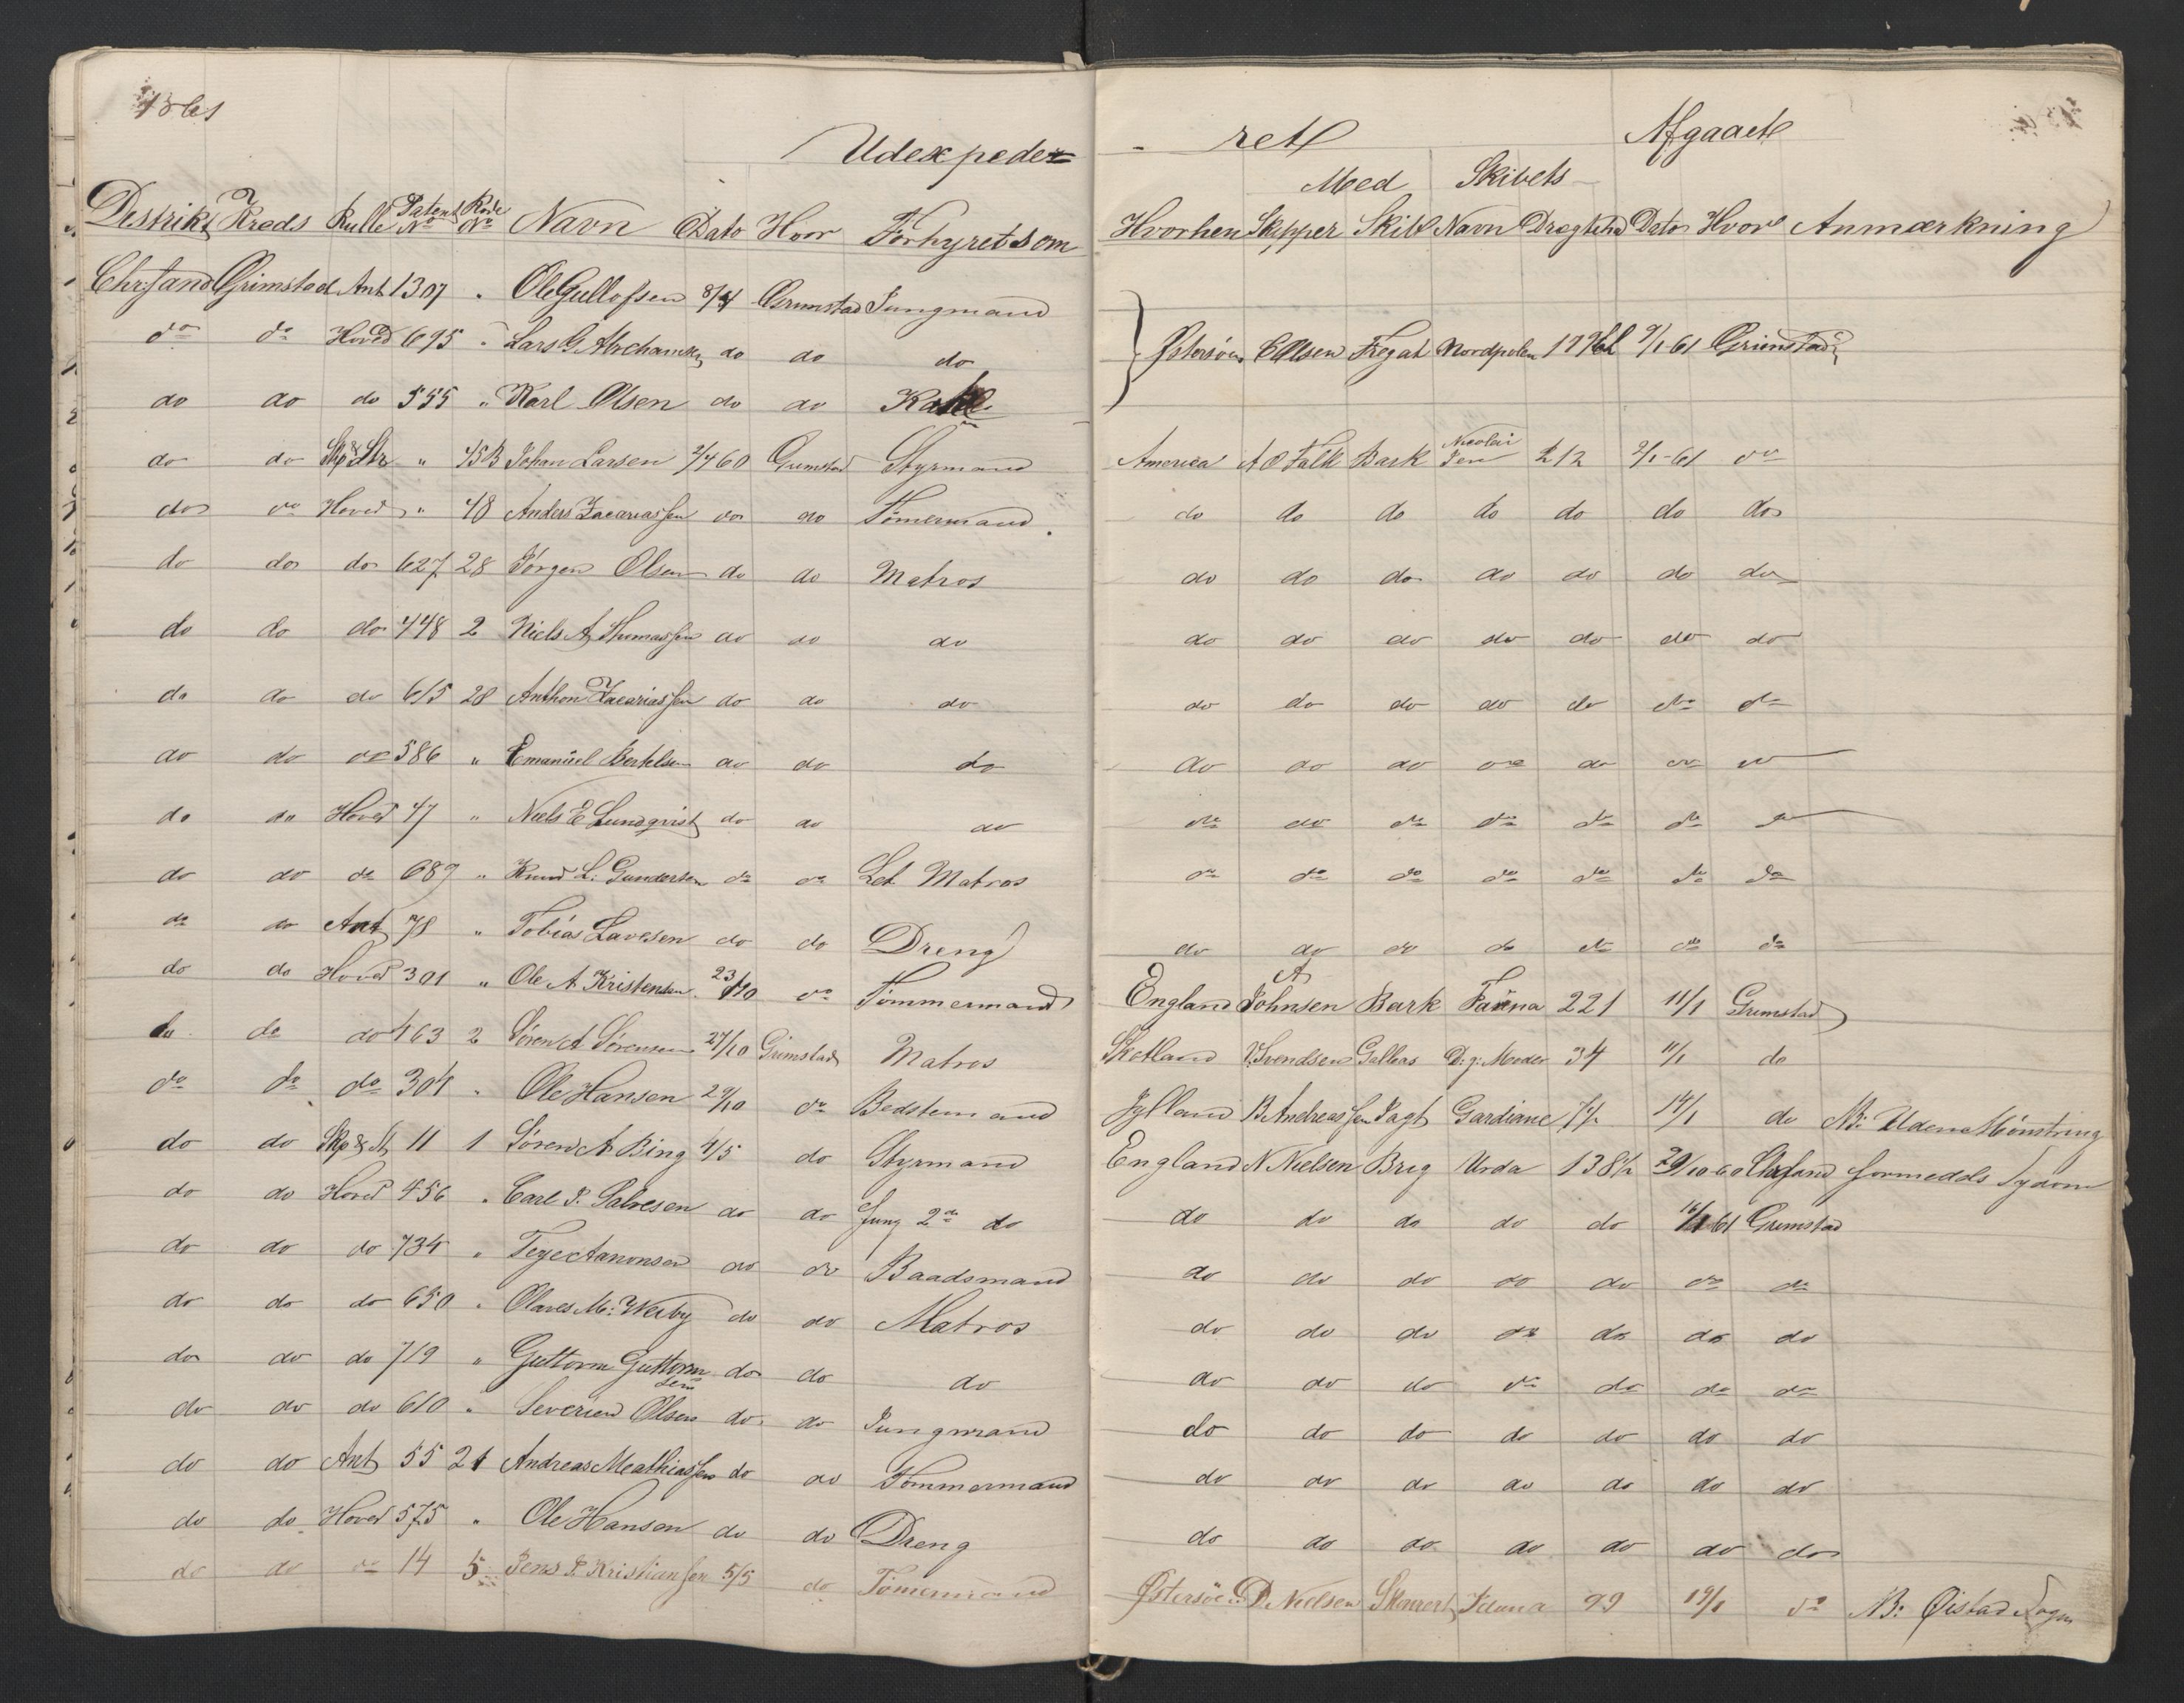 1861
Udexpede-
Destrikt Kreds Rulle Patent No Rode No Navn Dato Hvor Forhyret som
Chrsand Grimstad Ant 1307 " Ole Gullofsen Grimstad Jungmand
do do Hoved 695 " Lars G do do do
do do do 555 " Karl Olsen do do
do do Skp & Str " 45B Johan Larsen 2/4 60 Grimstad Styrmand
do do Hoved " 48 Anders Zacariassen do do Tömermand
do do do 627 28 Jörgen Olsen do do Matros
do do do 448 2 Niels A Thomassen do do do
do do do 615 28 Anthon Zacariassen do do do
do do do 586 " Emanuel Bertelsen do do do
do do Hoved 47 " Niels E Lundqvist do do do
do do do 689 " Knud L. Gundersen do do Let Matros
do do Ant 78 " Tobias Lavesen do do Dreng
do do Hoved 301 " Ole A Kristensen 23/10 do Tömmermand
do do do 463 2 Sören A Sörensen 27/10 Grimstad Matros
do do do 304 " Ole Hansen 29/10 do Bedstemand
do do Skp & St 11 1 Sören A Bing 4/5 do Styrmand
do do Hoved 456 " Carl P. Salvesen do do Jung 2de do
do do do 734 " Terje Aanonsen do do Baadsmand
do do do 650 " Olaves M: Wesby do do Matros
do do do 719 " Guttorm Guttormsen do do do
do do do 610 " Severin Olsen do do Jungmand
do do Ant 55 21 Andreas Mathiassen do do Tömmermand
do do Hoved 575 " Ole Hansen do do Dreng
do do do 14 5 Jens P. Kristiansen 5/5 do Tömermand
- ret Afgaaet
Med Skibets
Hvorhen Skipper Skib Navn Drægtihd Dato Hvor Anmærkning
Østersöen E Olsen Fregat Nordpolen 9/1-61 Grimstad
America A O Falk Bark Nicolai 212 9/1-61 do
do do do do do do do
do do do do do do do
do do do do do do do
do do do do do do do
do do do do do do do
do do do do do do do
do do do do do do do
do do do do do do do
England A Johnsen Bark Fauna 221 11/1 Grimstad
Skotland Svendsen Gallias D: g: Moder 34 11/1 do
Jylland B Andreassen Jagt Gardiane 14/1 do NB: Uden Mönstring
England N Nielsen Brig Urda 138½ 29/10-60 Chrsand formedels Sydom
do do do do do 16/1 61 Grimstad
do do do do do do do
do do do do do do do
do do do do do do do
do do do do do do do
do do do do do do do
do do do do do do do
Østersöen P. Nielsen Skonnert Iduna 99 19/1 do NB: Øistad Sogn